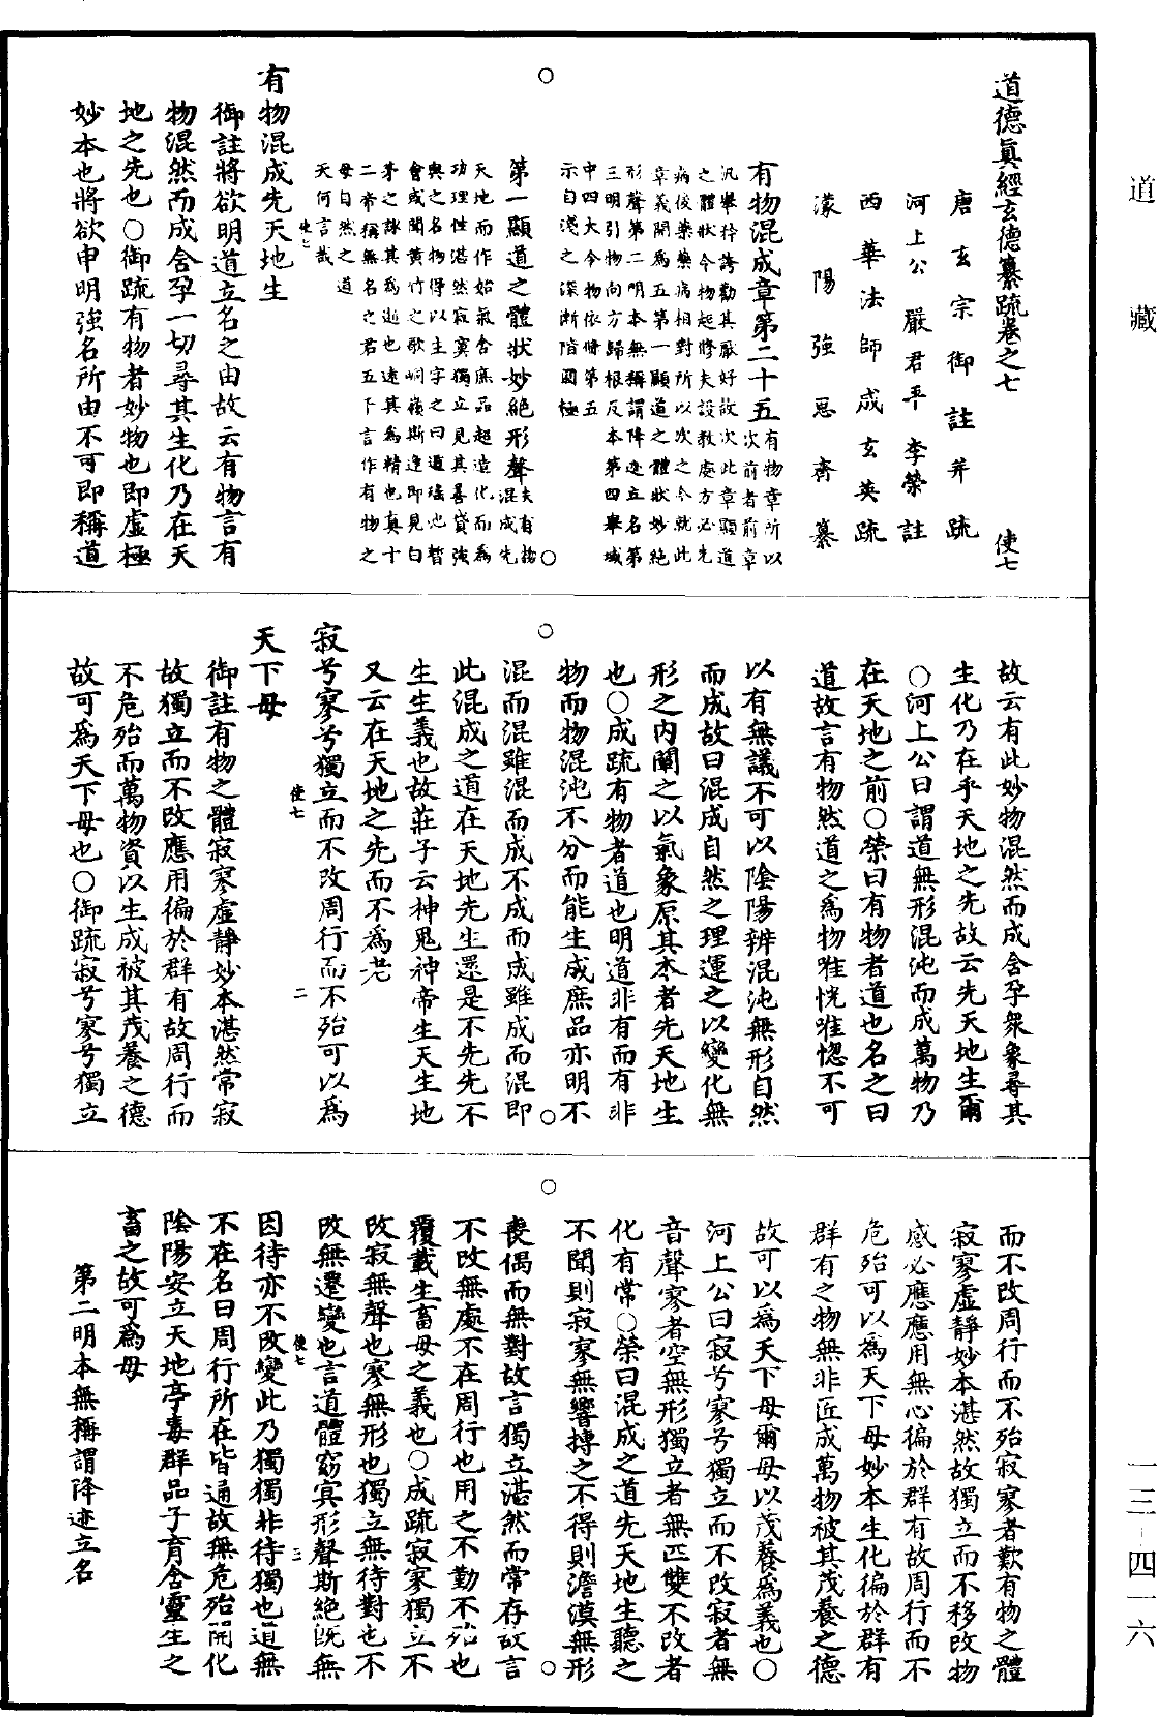 道藏
一三-四一六
道德眞經玄德纂疏卷之七
使七
唐玄宗御註并疏
河上公嚴君平李榮註
西華法師成玄英疏
濛陽強思齊纂
有物混成章第二十五
有物章所以
次前者前章
汎舉矜誇勸其厭好故次此章顯道
之體狀今物起修夫設教處方必先
病後藥藥病相對所以次之今就此
章義開為五第一顯道之體狀妙絕
形聲第二明本無稱謂降迹立名第
三明引物向方歸根反本第四舉域
中四大令物依修第五
示自邇之深漸階圓極
第一顯道之體狀妙絕形聲
夫有物
混成先
天地而作始氣含庶品超造化而為
功理性湛然寂寞獨立見其善貸強
與之名物得以生字之曰道瑤池暫
會或聞黃竹之歌峒嶺斯逢即見白
茅之詠其為逝也遠其為精也真十
二帝稱無名之君五下言作有物之
母自然之道
天何言哉
使七
有物混成先天地生
御註將欲明道立名之由故云有物言有
物混然而成含孕一切尋其生化乃在天
地之先也○御疏有物者妙物也即虛極
妙本也將欲申明強名所由不可即稱道
故云有此妙物混然而成含孕衆象尋其
生化乃在乎天地之先故云先天地生爾
○河上公曰謂道無形混沌而成萬物乃
在天地之前○榮曰有物者道也名之曰
道故言有物然道之為物唯恍唯惚不可
以有無議不可以陰陽辨混沌無形自然
而成故曰混成自然之理運之以變化無
形之內闡之以氣象原其本者先天地生
也○成疏有物者道也明道非有而有非
物而物混沌不分而能生成庶品亦明不
混而混雖混而成不成而成雖成而混即
此混成之道在天地先生還是不先先不
生生義也故莊子云神鬼神帝生天生地
又云在天地之先而不為老
寂兮寥兮獨立而不改周行而不殆可以為
使七
二
天下母
御註有物之體寂寥虛靜妙本湛然常寂
故獨立而不改應用徧於群有故周行而
不危殆而萬物資以生成被其茂養之德
故可為天下母也○御疏寂兮寥兮獨立
而不改周行而不殆寂寥者歎有物之體
寂寥虛靜妙本湛然故獨立而不移改物
感必應應用無心徧於群有故周行而不
危殆可以為天下母妙本生化徧於群有
群有之物無非匠成萬物被其茂養之德
故可以為天下母爾母以茂養為義也○
河上公曰寂兮寥兮獨立而不改寂者無
音聲寥者空無形獨立者無匹雙不改者
化有常○榮曰混成之道先天地生聽之
不聞則寂寥無響摶之不得則澹漠無形
喪偶而無對故言獨立湛然而常存故言
不改無處不在周行也用之不勤不殆也
覆載生畜母之義也○成疏寂寥獨立不
改寂無聲也寥無形也獨立無待對也不
改無遷變也言道體窈冥形聲斯絕既無
使七
三
因待亦不改變此乃獨獨非待獨也道無
不在名曰周行所在皆通故無危殆開化
陰陽安立天地亭毒群品子育含靈生之
畜之故可為母
第二明本無稱謂降迹立名